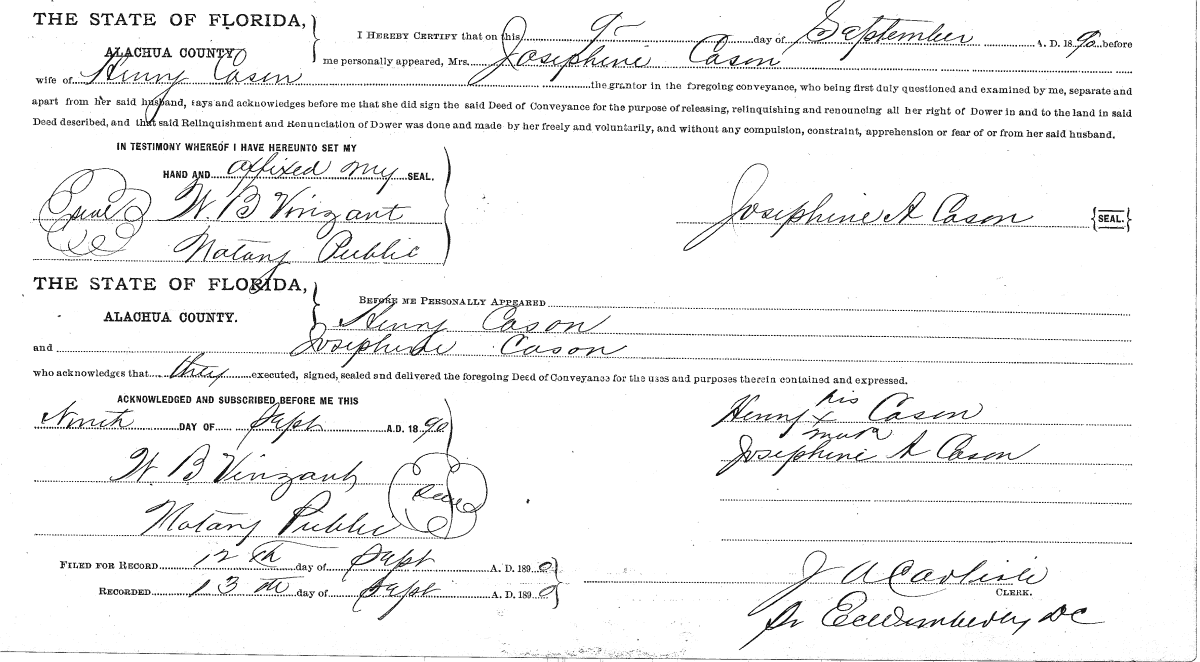 THE STATE OF FLORIDA,
ALACHUA COUNTY.
I HEREBY CERTIFY that on this 9 day of September A. D. 1890 before
me personally appeared, Mrs. Josephine Cason
wife of Henry Cason the grantor in the foregoing conveyance, who being first duly questioned and examined by me, separate and
apart from her said husband, says and acknowledges before me that she did sign the said Deed of Conveyance for the purpose of releasing, relinquishing and renouncing all her right of Dower in and to the land in said
Deed described, and that said Relinquishment and Renunciation of Dower was done and made by her freely and voluntarily, and without any compulsion, constraint, apprehension or fear of or from her said husband.
IN TESTIMONY WHEREOF I HAVE HEREUNTO SET MY
HAND AND affixed my SEAL.
Seal W. B Vinzant
Notary Public
Josephine A Cason {SEAL.}
THE STATE OF FLORIDA,
ALACHUA COUNTY.
BEFORE ME PERSONALLY APPEARED
Henry Cason
and Josephine Cason
who acknowledges that they executed, signed, sealed and delivered the foregoing Deed of Conveyance for the uses and purposes therein contained and expressed.
ACKNOWLEDGED AND SUBSCRIBED BEFORE ME THIS
Ninth DAY OF Sept A.D. 1890
W B Vinzant
Seal
Notary Public
his
Henry x Cason
mark
Josephine A Cason
FILED FOR RECORD 12th day of Sept A. D. 1890
RECORDED 13th day of Sept A. D. 1890
J A Carlisle
CLERK.
Pr Wimberly DC